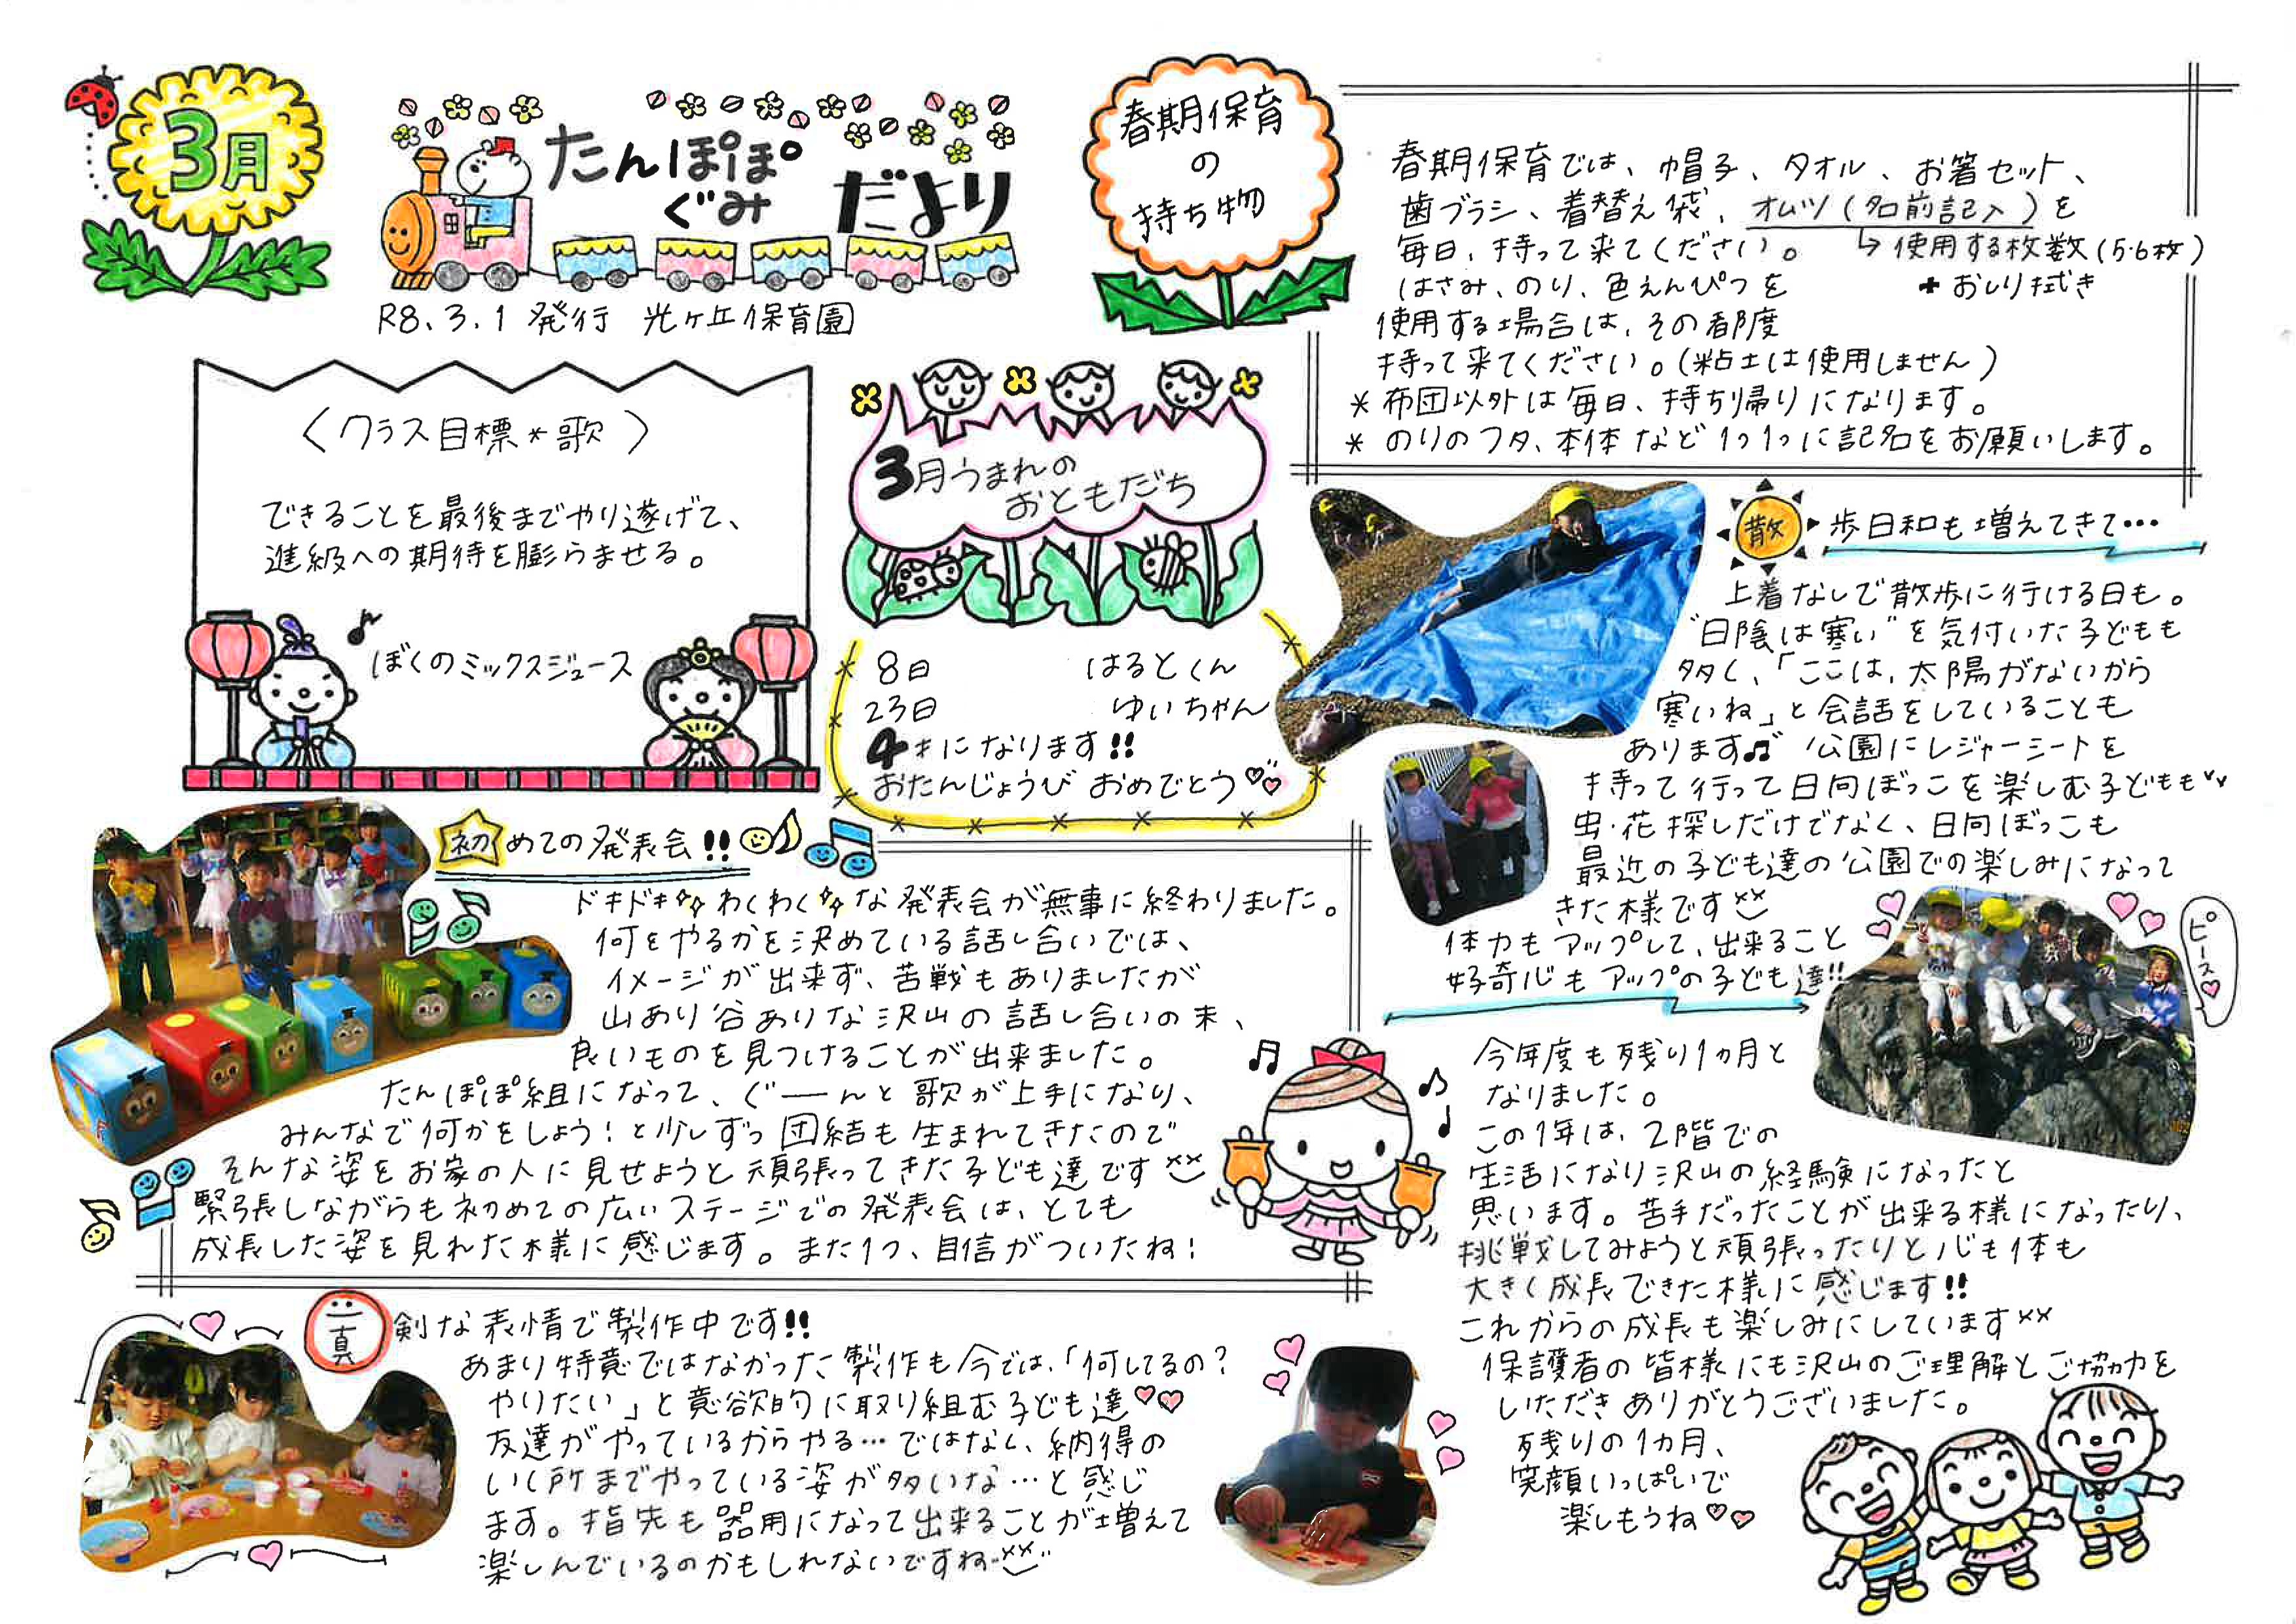 3月
たんぽぽ
ぐみ だより
R8.3.1 発行 光ヶ丘保育園
春期保育
の
持ち物
春期保育では、帽子、タオル、お箸セット、
歯ブラシ、着替え袋、オムツ(名前記入)を
毎日、持って来てください。 ↳使用する枚数(5·6枚)
+おしり拭き
はさみ、のり、色えんぴつを
使用する場合は、その都度
持って来てください。(粘土は使用しません)
*布団以外は毎日、持ち帰りになります。
*のりのフタ、本体など1つ1つに記名をお願いします。
〈クラス目標*歌〉
できることを最後までやり遂げて、
進級への期待を膨らませる。
♪ぼくのミックスジュース
3月うまれの
おともだち
8日 はるとくん
23日 ゆいちゃん
4才になります!!
おたんじょうび おめでとう♡♡
散歩日和も増えてきて…
上着なしで散歩に行ける日も。
"日陰は寒い"を気付いた子どもも
多く、「ここは、太陽がないから
寒いね」と会話をしていることも
あります♫ 公園にレジャーシートを
持って行って日向ぼっこを楽しむ子どもも
虫·花探しだけでなく、日向ぼっこも
最近の子ども達の公園での楽しみになって
きた様です
体力もアップして、出来ること
好奇心もアップの子ども達!!
ピース♡
初めての発表会!!
ドキドキわくわくな発表会が無事に終わりました。
何をやるかを決めている話し合いでは、
イメージが出来ず、苦戦もありましたが
山あり谷ありな沢山の話し合いの末、
良いものを見つけることが出来ました。
たんぽぽ組になって、ぐーんと歌が上手になり、
みんなで何かをしよう!と少しずつ団結も生まれてきたので
そんな姿をお家の人に見せようと頑張ってきた子ども達です
緊張しながらも初めての広いステージでの発表会は、とても
成長した姿を見れた様に感じます。また1つ、自信がついたね!
真剣な表情で製作中です!!
あまり得意ではなかった製作も今では、「何してるの?
やりたい」と意欲的に取り組む子ども達♡♡
友達がやっているからやる…ではなく、納得の
いく所までやっている姿が多いな…と感じ
ます。指先も器用になって出来ることが増えて
楽しんでいるのかもしれないですね
今年度も残り1ヵ月と
なりました。
この1年は、2階での
生活になり沢山の経験になったと
思います。苦手だったことが出来る様になったり、
挑戦してみようと頑張ったりと心も体も
大きく成長できた様に感じます!!
これからの成長も楽しみにしています
保護者の皆様にも沢山のご理解とご協力を
いただきありがとうございました。
残りの1カ月、
笑顔いっぱいで
楽しもうね♡♡